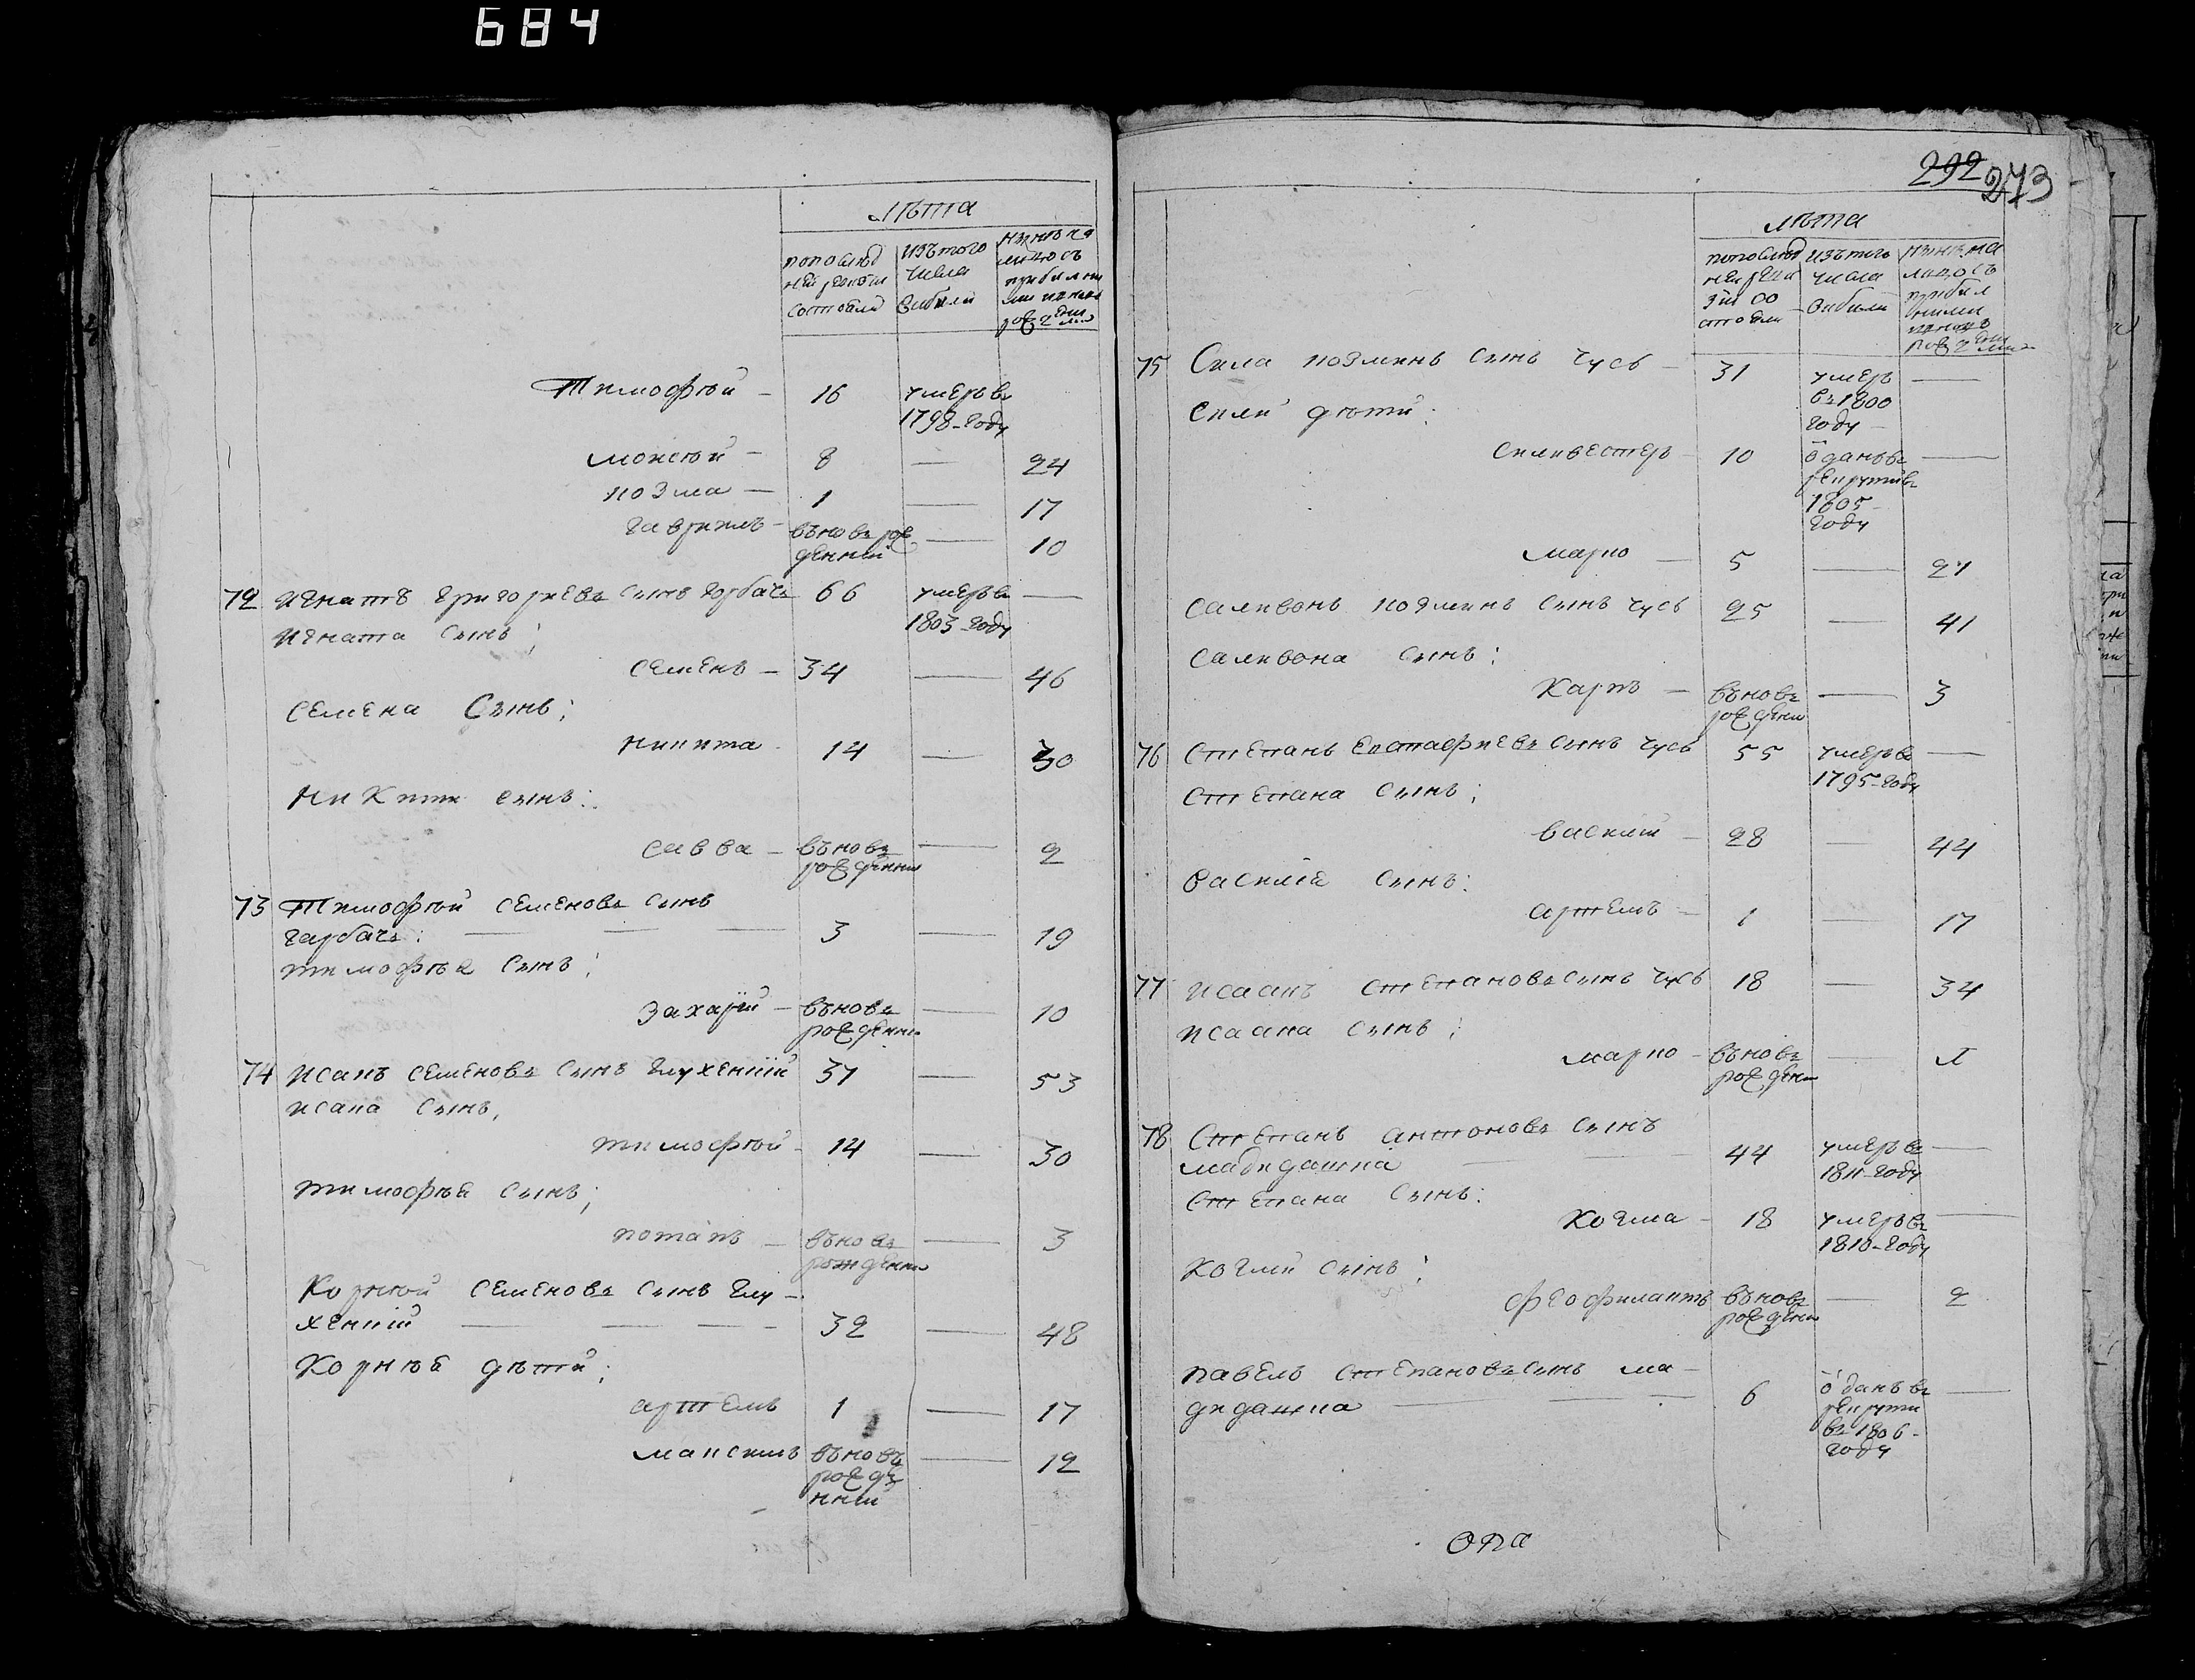 684
лѣта
пополѣд
ней ревизи
состояли
изъ того
числа
выбыли
Тимофѣй — 16 умеръ въ
1798-году
моисѣй — 8 — 24
козма — 1 — 17
гаврилъ — вновь рож
денній — 10
72 игнатъ григориевъ сынъ горбачъ 66 умеръ въ —
1803-году
игната сынъ;
семенъ — 34 — 46
семена Сынъ;
никита 14 — 30
никиты сынъ:
савва — въновъ — 2
рожденни
73 Тимофѣй семеновъ сынъ
гарбачъ: — 3 — 19
тимофѣя сынъ;
захарій — въновъ — 10
рожденни
74 исакъ семеновъ сынъ глухенкій 37 — 53
исака сынъ,
тимофѣй — 14 — 30
тимофѣя сынъ;
потапъ — въновъ — 3
рожденни
Корнѣй семеновъ сынъ глу-
хенкій — 32 — 48
Корнѣя дѣти;
артемъ 1 — 17
максимъ въновъ — 12
рожде
нній
292 273
лѣта
изъ того
числа
выбили
75 Сила козминъ сынъ гусь — 31 умеръ —
въ 1800
году
Сили дѣти:
силивестеръ 10 ѿданъ въ —
рекрути въ
1805
году
марко — 5 — 21
саливонъ козминъ сынъ гусь 25 — 41
саливона сынъ:
Карпъ — въновъ — 3
рождени
76 Степанъ Евстафиевъ сынъ гусь 55 умеръ въ —
1795-году
Степана сынъ;
василій — 28 — 44
василія сынъ:
артемъ — 1 — 17
77 исаакъ степановъ сынъ гусь 18 — 34
исаака сынъ;
марко — въновъ —
рождени
78 Степанъ антоновъ сынъ
44 умеръ въ —
1811-году
Степана сынъ:
Козма — 18 умеръ въ —
1810-году
Козми сынъ;
феофилактъ въновъ — 2
рождени
павелъ степановъ сынъ ма-
6 ѿданъ въ —
рекрути
въ 1806-
году